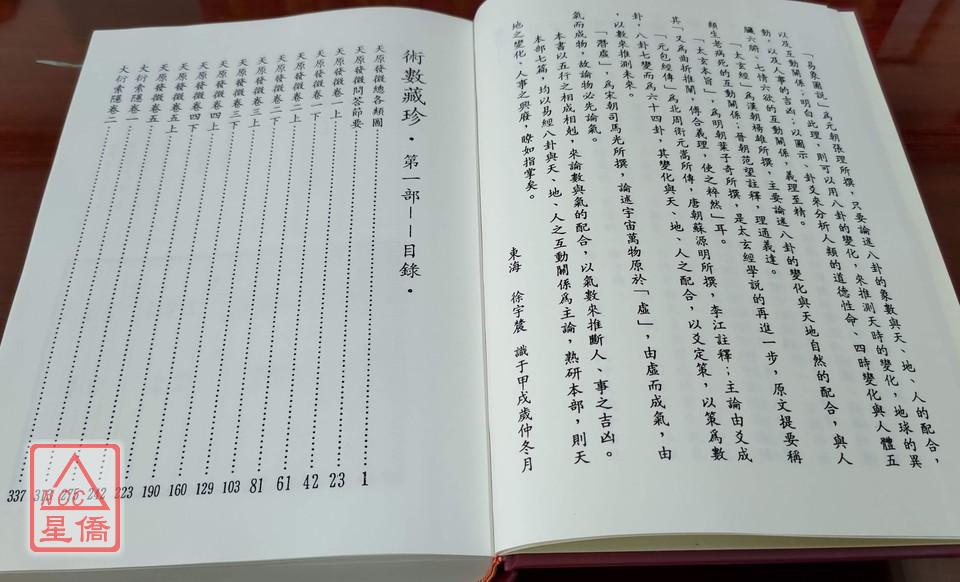 「易象圖說」為元朝張理所撰,只要論述八卦的象數與天、地、人的配合,
以及互動關係,明白此理,則可以用八卦的變化,來推測天時的變化,地球的異
動,以及人事的吉凶,以圖示、卦爻來分析人類的道德性命、四時變化與人體五
臟六腑、七情六欲的互動關係,義理至精。
「太玄經」為漢朝楊雄所撰,主要論述八卦的變化與天地自然的配合,與人
類生老病死的互動關係;晉朝范望註釋,理通義達。
「太玄本旨」,為明朝葉子奇所撰,是太玄經學說的再進一步,原文提要稱
其「又為曲折推闡,傅合義理,使之粹然」耳。
「元包經傳」為北周衛元嵩所傳,唐朝蘇源明所撰,李江註釋;主論由爻成
卦,八卦七變而為六十四卦,其變化與天、地、人之配合,以爻定策,以策為數
,以數來推測未來。
「潛虛」,為宋朝司馬光所撰,論述宇宙萬物原於「虛」,由虛而成氣,由
氣而成物,故論物必先論氣。
本書以五行之相成相剋,來論數與氣的配合,以氣數來推斷人、事之吉凶。
本部七篇,均以易經八卦與天、地、人之互動關係為主論,熟研本部,則天
地之變化,人事之興廢,瞭如指掌矣。
東海 徐宇農 識于甲戌歲仲冬月
術數藏珍・第一部——目錄・
天原發微總各類圖 1
天原發微問答節要 23
天原發微卷一上 42
天原發微卷一下 61
天原發微卷二上 81
天原發微卷二下 103
天原發微卷三上 129
天原發微卷三下 160
天原發微卷四上 190
天原發微卷四下 223
天原發微卷五上 242
天原發微卷五下 275
大衍索隱卷一 313
大衍索隱卷二 337
NCC
星僑